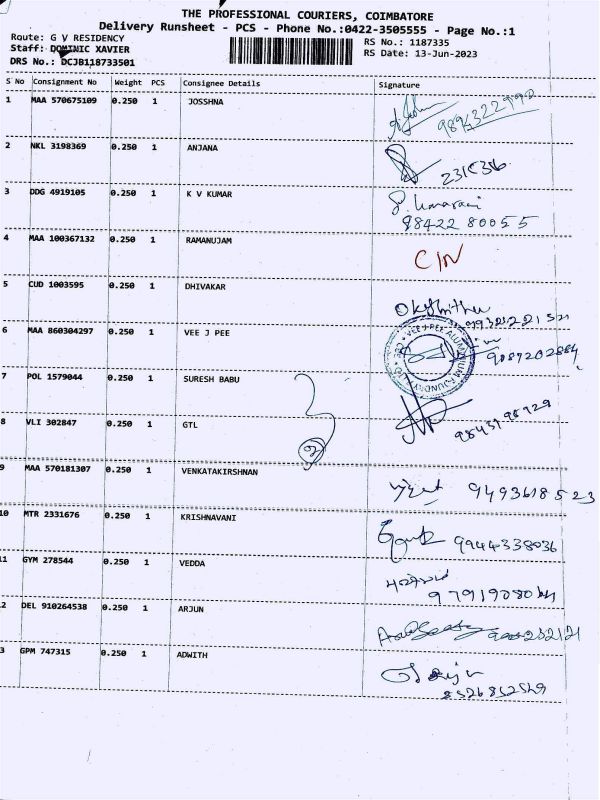 THE PROFESSIONAL COURIERS, COIMBATORE
Delivery Runsheet - PCS - Phone No.:0422-3505555 - Page No.:1
Route: G V RESIDENCY RS No.: 1187335
Staff: DOMINIC XAVIER RS Date: 13-Jun-2023
DRS No.: DCJB118733501
S No Consignment No Weight PCS Consignee Details Signature
1 MAA 570675109 0.250 1 JOSSHNA
2 NKL 3198369 0.250 1 ANJANA
3 DDG 4919105 0.250 1 K V KUMAR
98422 80055
4 MAA 100367132 0.250 1 RAMANUJAM
5 CUD 1003595 0.250 1 DHIVAKAR
6 MAA 860304297 0.250 1 VEE J PEE
7 POL 1579044 0.250 1 SURESH BABU
8 VLI 302847 0.250 1 GTL
2
9 MAA 570181307 0.250 1 VENKATAKIRSHNAN 9493618523
10 MTR 2331676 0.250 1 KRISHNAVANI 9944338036
11 GYM 278544 0.250 1 VEDDA
2 DEL 910264538 0.250 1 ARJUN
3 GPM 747315 0.250 1 ADWITH
8526852549